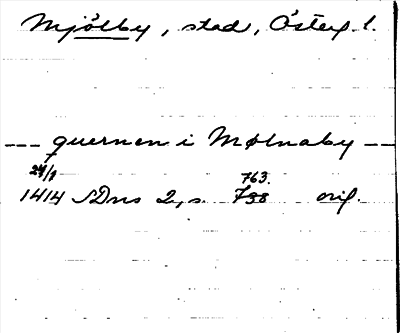 Mjölby, stad, Österg. l.
--- quernen i Mølnaby ---
24/1 763.
1414 SDns 2, s. 738 orig.